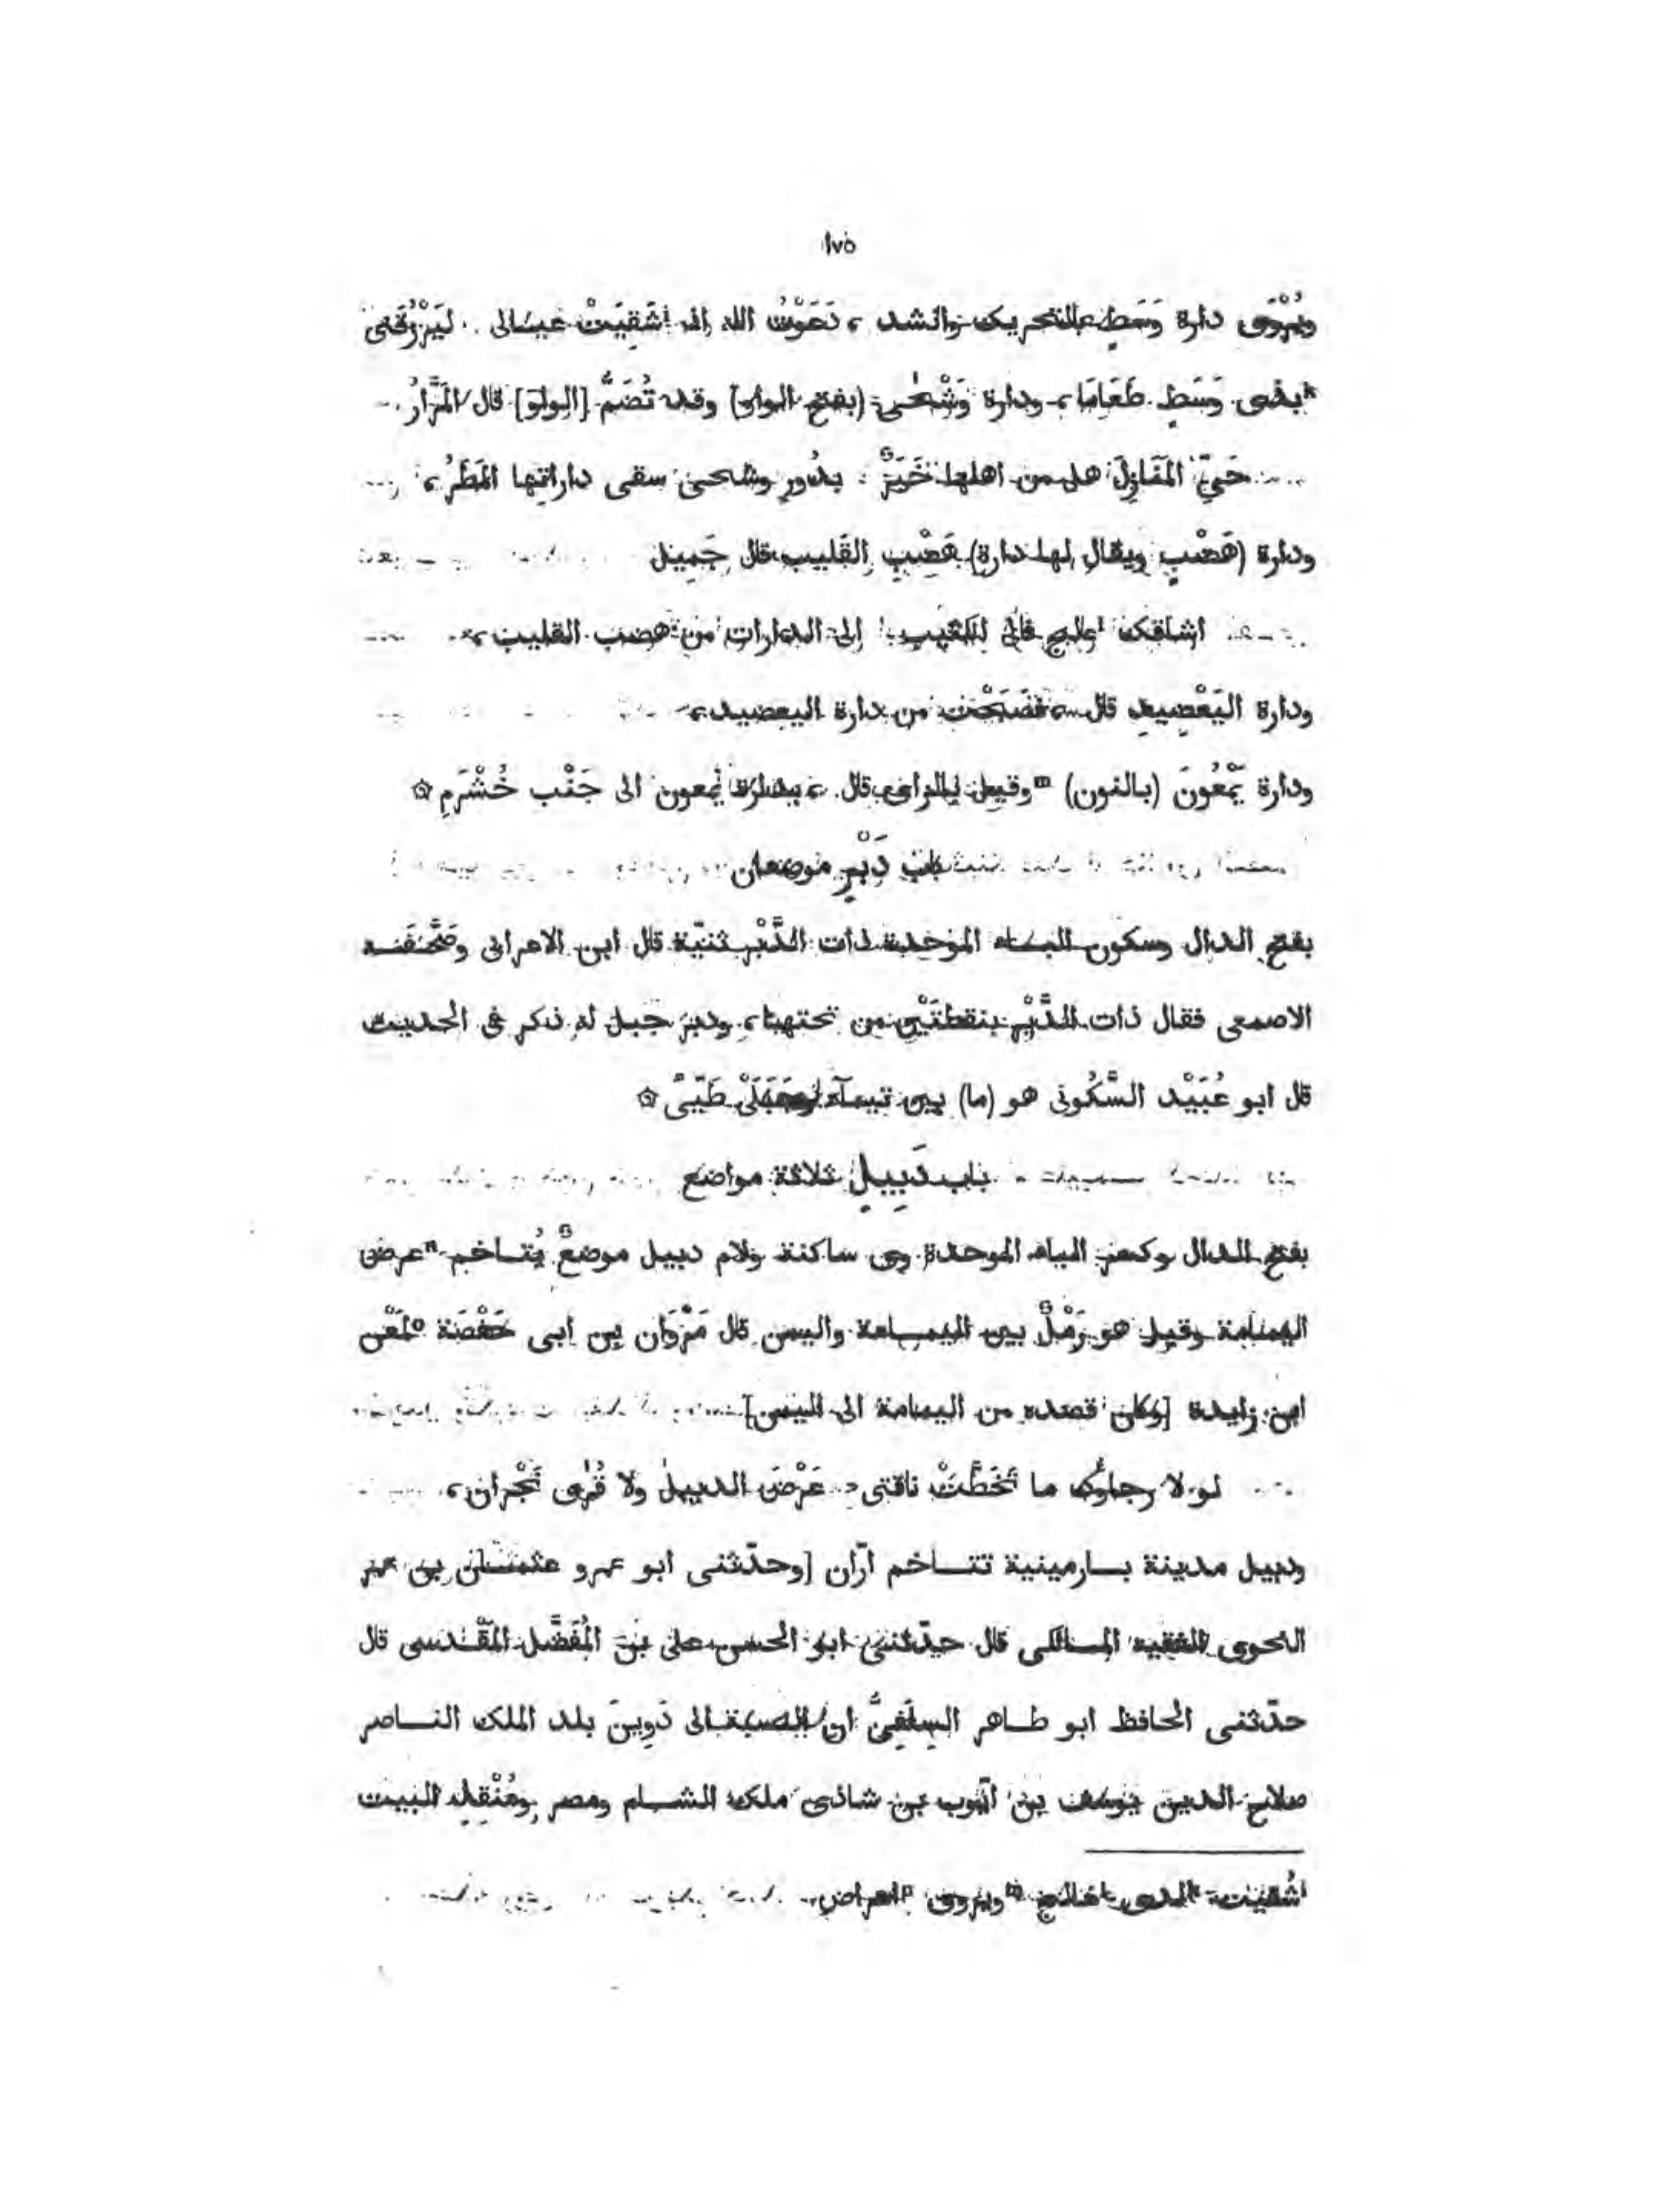 ١٧٥
ويُرْوَى دارة وَسَطٍ بالتحريك وانشد ، دَعَوْتُ الله اذ شَقِيَتْ عيالى . ليَرْزُقَنى
لدى وَسَطٍ طَعَامَا ، ودارة وَشْحَى (بفتح الواو) وقد تُضَمُّ [الواو] قال المَرَّارُ
حَىِّ المَنَازِلَ هل من اهلها خَبَرٌ . بدُورِ وشحى سقى داراتِها المَطَرُ ،
ودارة (هَضْبٍ ويقال لها دارة) هَضْبِ القَليب قال جَميل
اشاقك عالج فالى الكثيب . الى الدارات من هضب القليب ،
ودارة اليَعْضِيدِ قال ، فصَبَحْت من دارة اليعضيد ،
ودارة يَمْعُونَ (بالنون) ᵐوقيل بالراى قال ، بدارة يمعون الى جَنْب خُشْرَمِ ۞
باب دَبْرٍ موضعان
بفتح الدال وسكون الباء الموحدة ذات الدَّبْرِ ثنيّة قال ابن الاعرابى وصَّحَفَه
الاصمعى فقال ذات الدَّيْرِ بنقطتَيْن من تحتها ، ودبر جبل له ذكر فى الحديث
قال ابو عُبَيْد السَّكُونى هو (ما) بين تيماء وجَبَلَىْ طَيّىً ۞
باب دَبِيلٍ ثلاثة مواضع
بفتح الدال وكسر الباء الموحدة وى ساكنة ولام دبيل موضعٌ يُتاخم ⁿعرض
اليمامة وقيل هو رَمْلٌ بين اليمامة واليمن قال مَرْوَان بن ابى حَفْصَة ᵒلمَعْن
ابن زايدة [وكان قصده من اليمامة الى اليمن]
لو لا رجاوُك ما تَخَطَّتْ ناقتى . عَرْضَ الدبيل ولا قُرَى نَجْران ،
ودبيل مدينة بارمينية تتاخم ارّان [وحدّثنى ابو عمرو عثمان بن عمر
النحوى الفقيه المالكى قال حدّثنى ابو الحسن على بن المُفَضَّل المَقْدسى قال
حدّثنى الحافظ ابو طاهر السِلَفِىُّ ان النسبة الى دَوِينَ بلد الملك الناصر
صلاح الدين يوسف بن ايّوب بن شاذى ملك الشام ومصر ومُنْقِذ البيت
ⁱشُقيَت ᵏلدى ˡفالج ᵐويروى ⁿاعراض